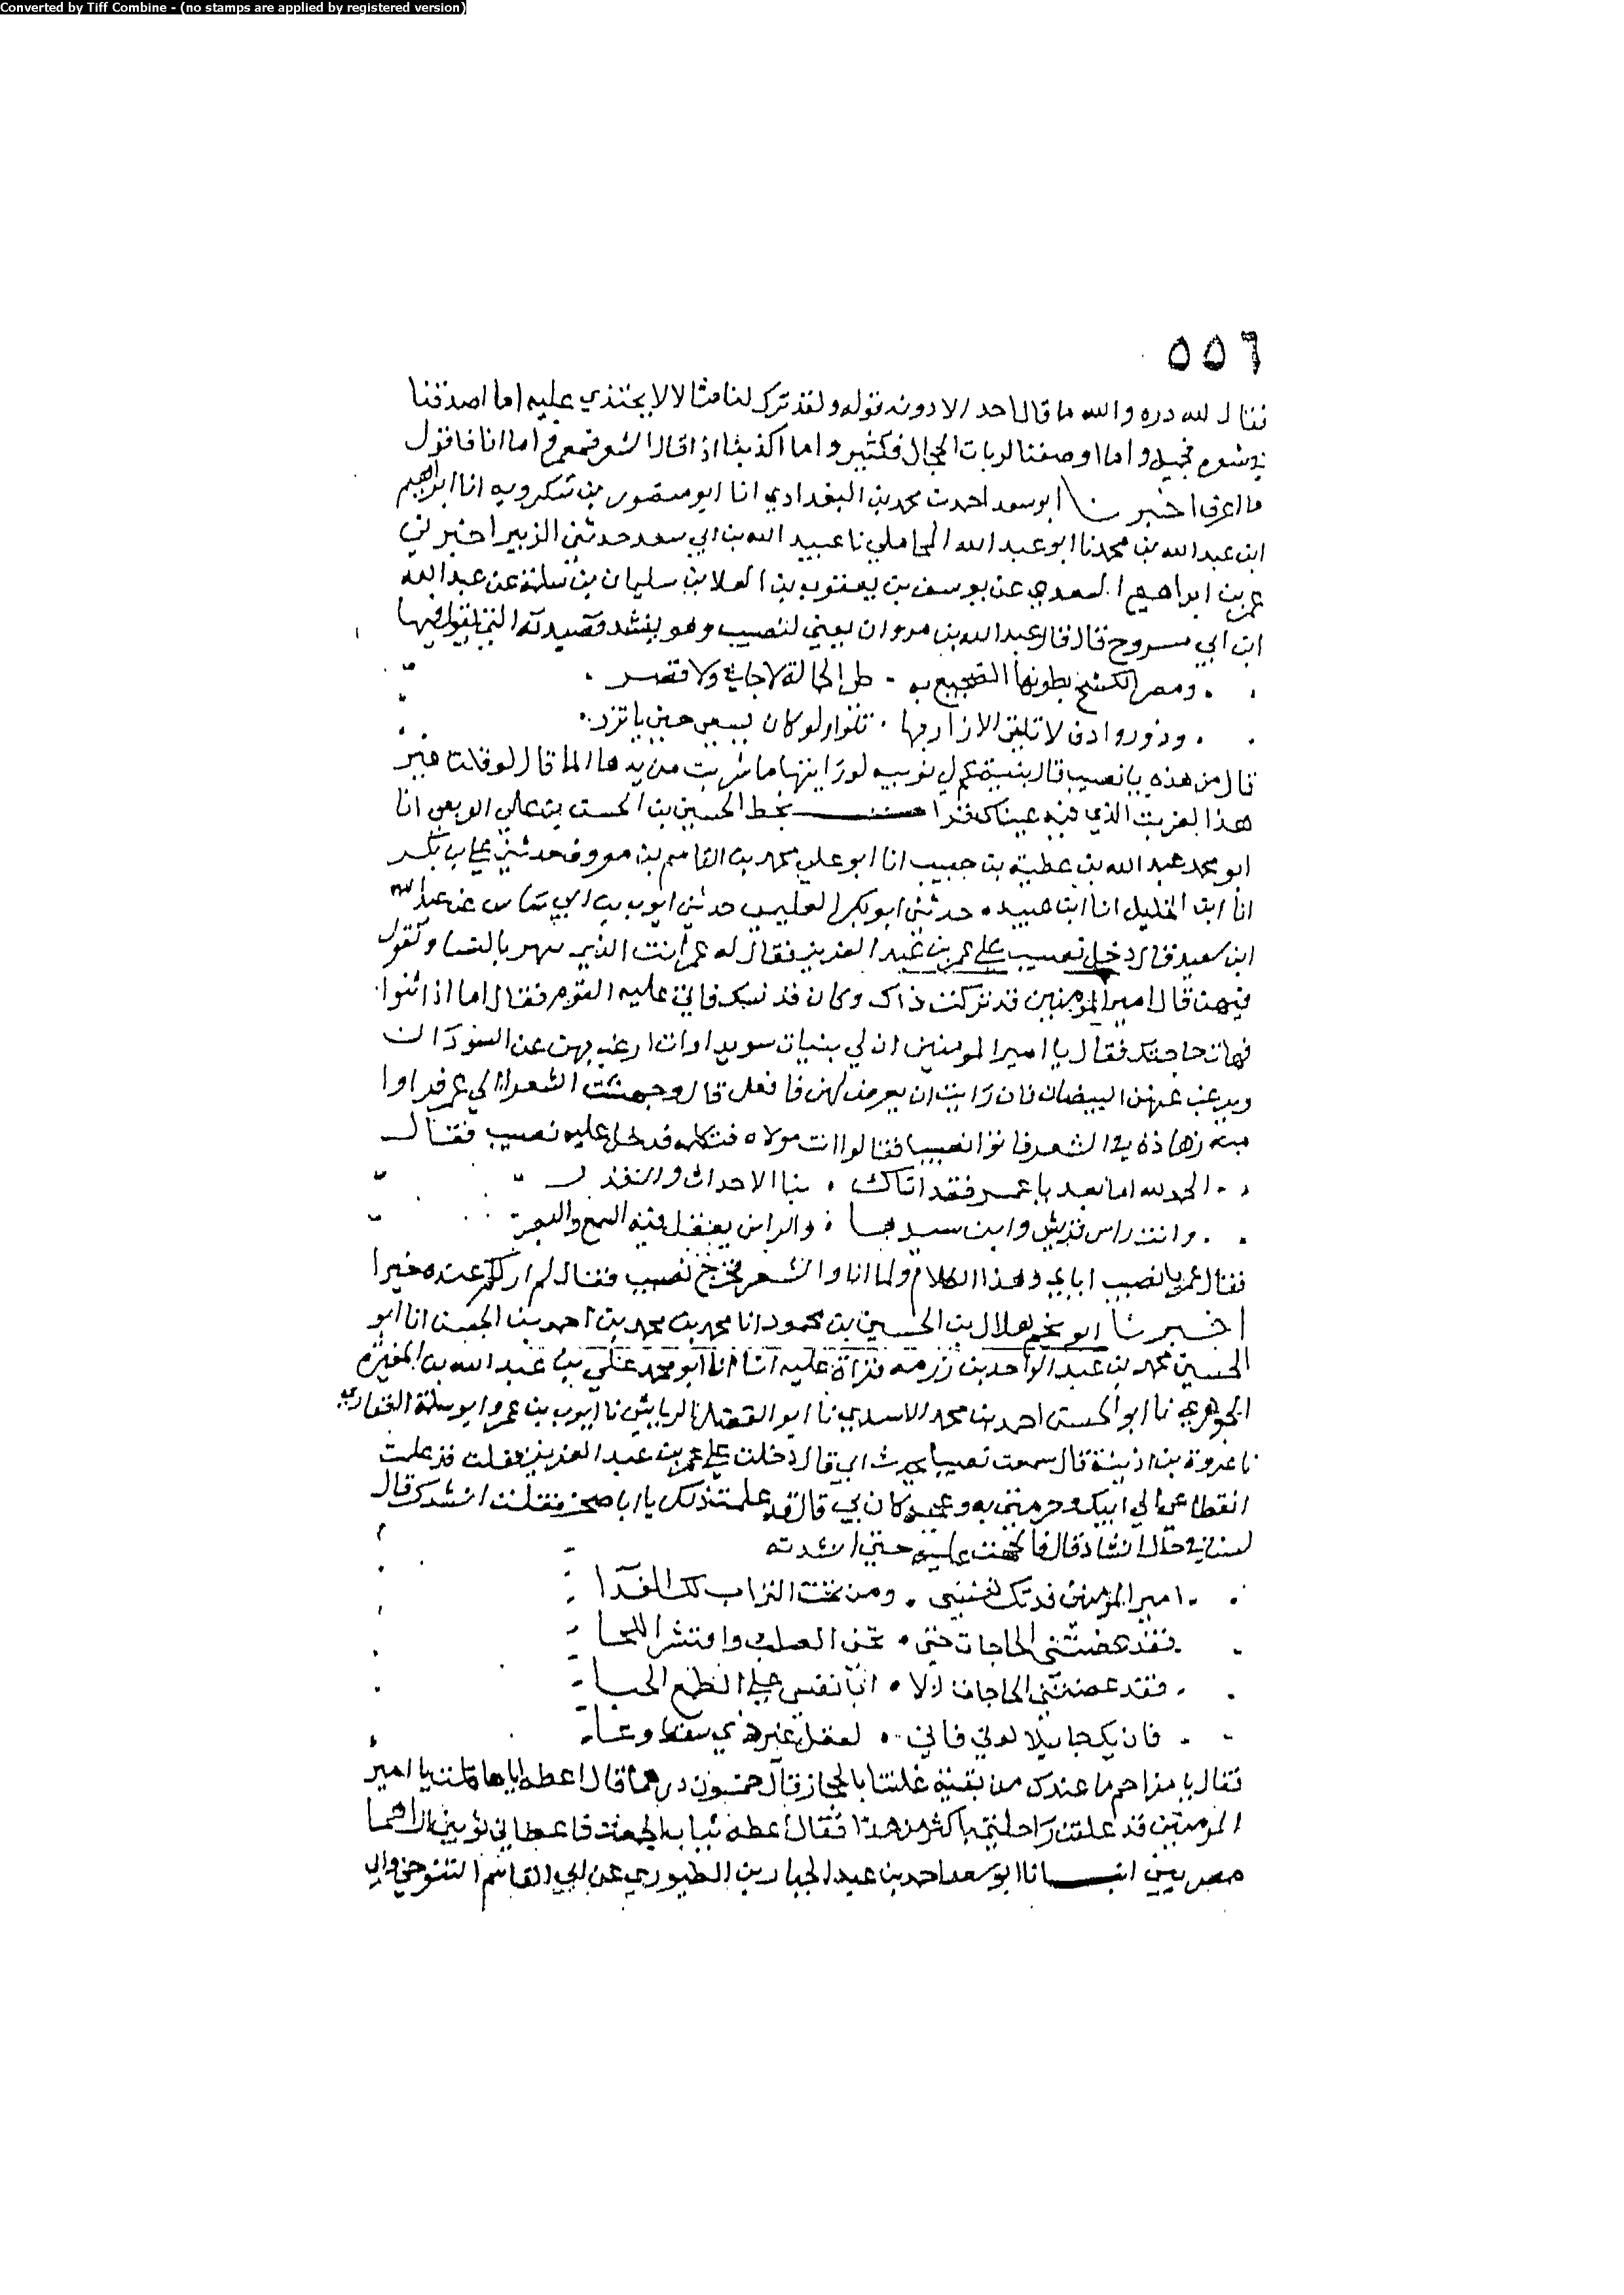 Converted by Tiff Combine - (no stamps are applied by registered version)
٥٥٦
فقال لله دره والله ما قال احد الا دونه قوله ولقد ترك لنا مثالا لا يحتذي عليه اما اصدقنا
في شعره فجميل واما اوصفنا لربات الحجال فكثير واما اكذبنا اذا قال الشعر فعمر واما انا فاقول
ما اعرف اخبرنا ابو سعد احمد بن محمد بن البغدادي انا ابو منصور بن شكرويه انا ابراهيم
ابن عبد الله بن محمد نا ابو عبد الله المحاملي نا عبيد الله بن ابي سعد حدثني الزبير اخبرني
عمر بن ابراهيم السعدي عن يوسف بن يعقوب بن العلا بن سليمان بن سلمة عن عبد الله
ابن ابي مسروح قال قال عبد الله بن مروان يعني لنصيب وهو ينشد قصيدته التي يقول فيها
ومضمر الكشح يطويها الضجيع به طي الحمالة لا جاف ولا قصر
وذو روادف لا تلقي الازار بها تلوا ولو كان سبعين حين ياتزر
قال من هذه يا نصيب قال بنية عم لي نوبيه لو رايتها ما شربت من يدها الما قال لو قلت غير
هذا لضربت الذي فيه عيناك قرا بخط الحسين بن الحسن بن علي الربعي انا
ابو محمد عبد الله بن عطية بن حبيب انا ابو علي محمد بن القاسم بن معروف حدثني علي بن بكر
انا ابن الخليل انا ابن عبيده حدثني ابو بكر العليمي حدثني ايوب بن ابي عن عبد الله
ابن سعيد قال دخل نصيب على عمر بن عبد العزيز فقال له عمر انت الذي بالنسا وتقول
فيهن قال امير المومنين قد تركت ذاك وكان قد نسك فاثني عليه القوم فقال اما اذ اثنوا
فهات حاجتك فقال يا امير المومنين ان لي بنيات سويداوات ارغب بهن عن السودان
ويرغب عنهن البيضان فان رايت ان يفرض لهن فافعل قال وجمعت الشعرا الي عمر فراوا
منه زهاده في الشعر فاتوا نصيبا فقالوا انت مولاه فتكلمه فدخل عليه نصيب فقال
الحمد لله اما بعد يا عمر فقد اتاك بنا الاحداث والقدر
وانت راس قريش وابن سيدها والراس يعقل فيه السمع والبصر
فقال عمر يا نصيب اياي وهذا الكلام ولما انا والشعر فخرج نصيب فقال لم ار لكم عنده خيرا
اخبرنا ابو نجم هلال بن الحسين بن محمود انا محمد بن محمد بن احمد بن الحسن انا ابو
الحسين محمد بن عبد الواحد بن زرمه قراة عليه انا انا ابو محمد علي بن عبد الله بن المغيرة
الجوهري نا ابو الحسن احمد بن محمد الاسدي نا ابو الفضل الرياشي نا ايوب بن عمر وابو سلمة الغفاري
نا عروة بن اذينة قال سمعت نصيبا يحدث ابي قال دخلت على عمر بن عبد العزيز فقلت قد علمت
انقطاعي الي ابيك وحرمتي به وكان بي قال قد علمت ذلك يا ابا صخر فقلت انشدك قال
لسنا في حال انشاد قال فالححت عليه حتي انشدته
امير المومنين فدتك نفسي ومن تحت التراب لك الفدا
فقد عضتني الحاجات حتي الصلب وانتشر اللحا
فقد عضتني الحاجات الا انا نفس على الطمع الحيا
فان يك لدني فاني لعقل غير ذي سقط وعا
فقال يا مزاحم ما عندك من بقية غلتنا بالحجاز قال خمسون درهما قال اعطه اياها قلت يا امير
المومنين قد علفت راحلتي باكثر من هذا فقال اعطه ثيابه الجمعة فاعطاني ثوبين اراهما
مصريين انبانا ابو سعد احمد بن عبد الجبار بن الطيوري عن ابي القاسم التنوخي وابي